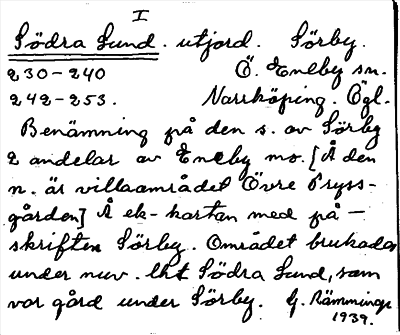 I
Södra Lund. utjord. Sörby.
230-240 Ö. Eneby sn.
242-253. Norrköping. Ögl.
Benämning på den s. av Sörby
2 andelar av Eneby mo. [Å den
n. är villaområdet Övre Pryss-
gården] Å ek-kartan med på-
skriften Sörby. Området brukades
under nuv. lht Södra Lund, som
var gård under Sörby. G. Rämninge
1939.